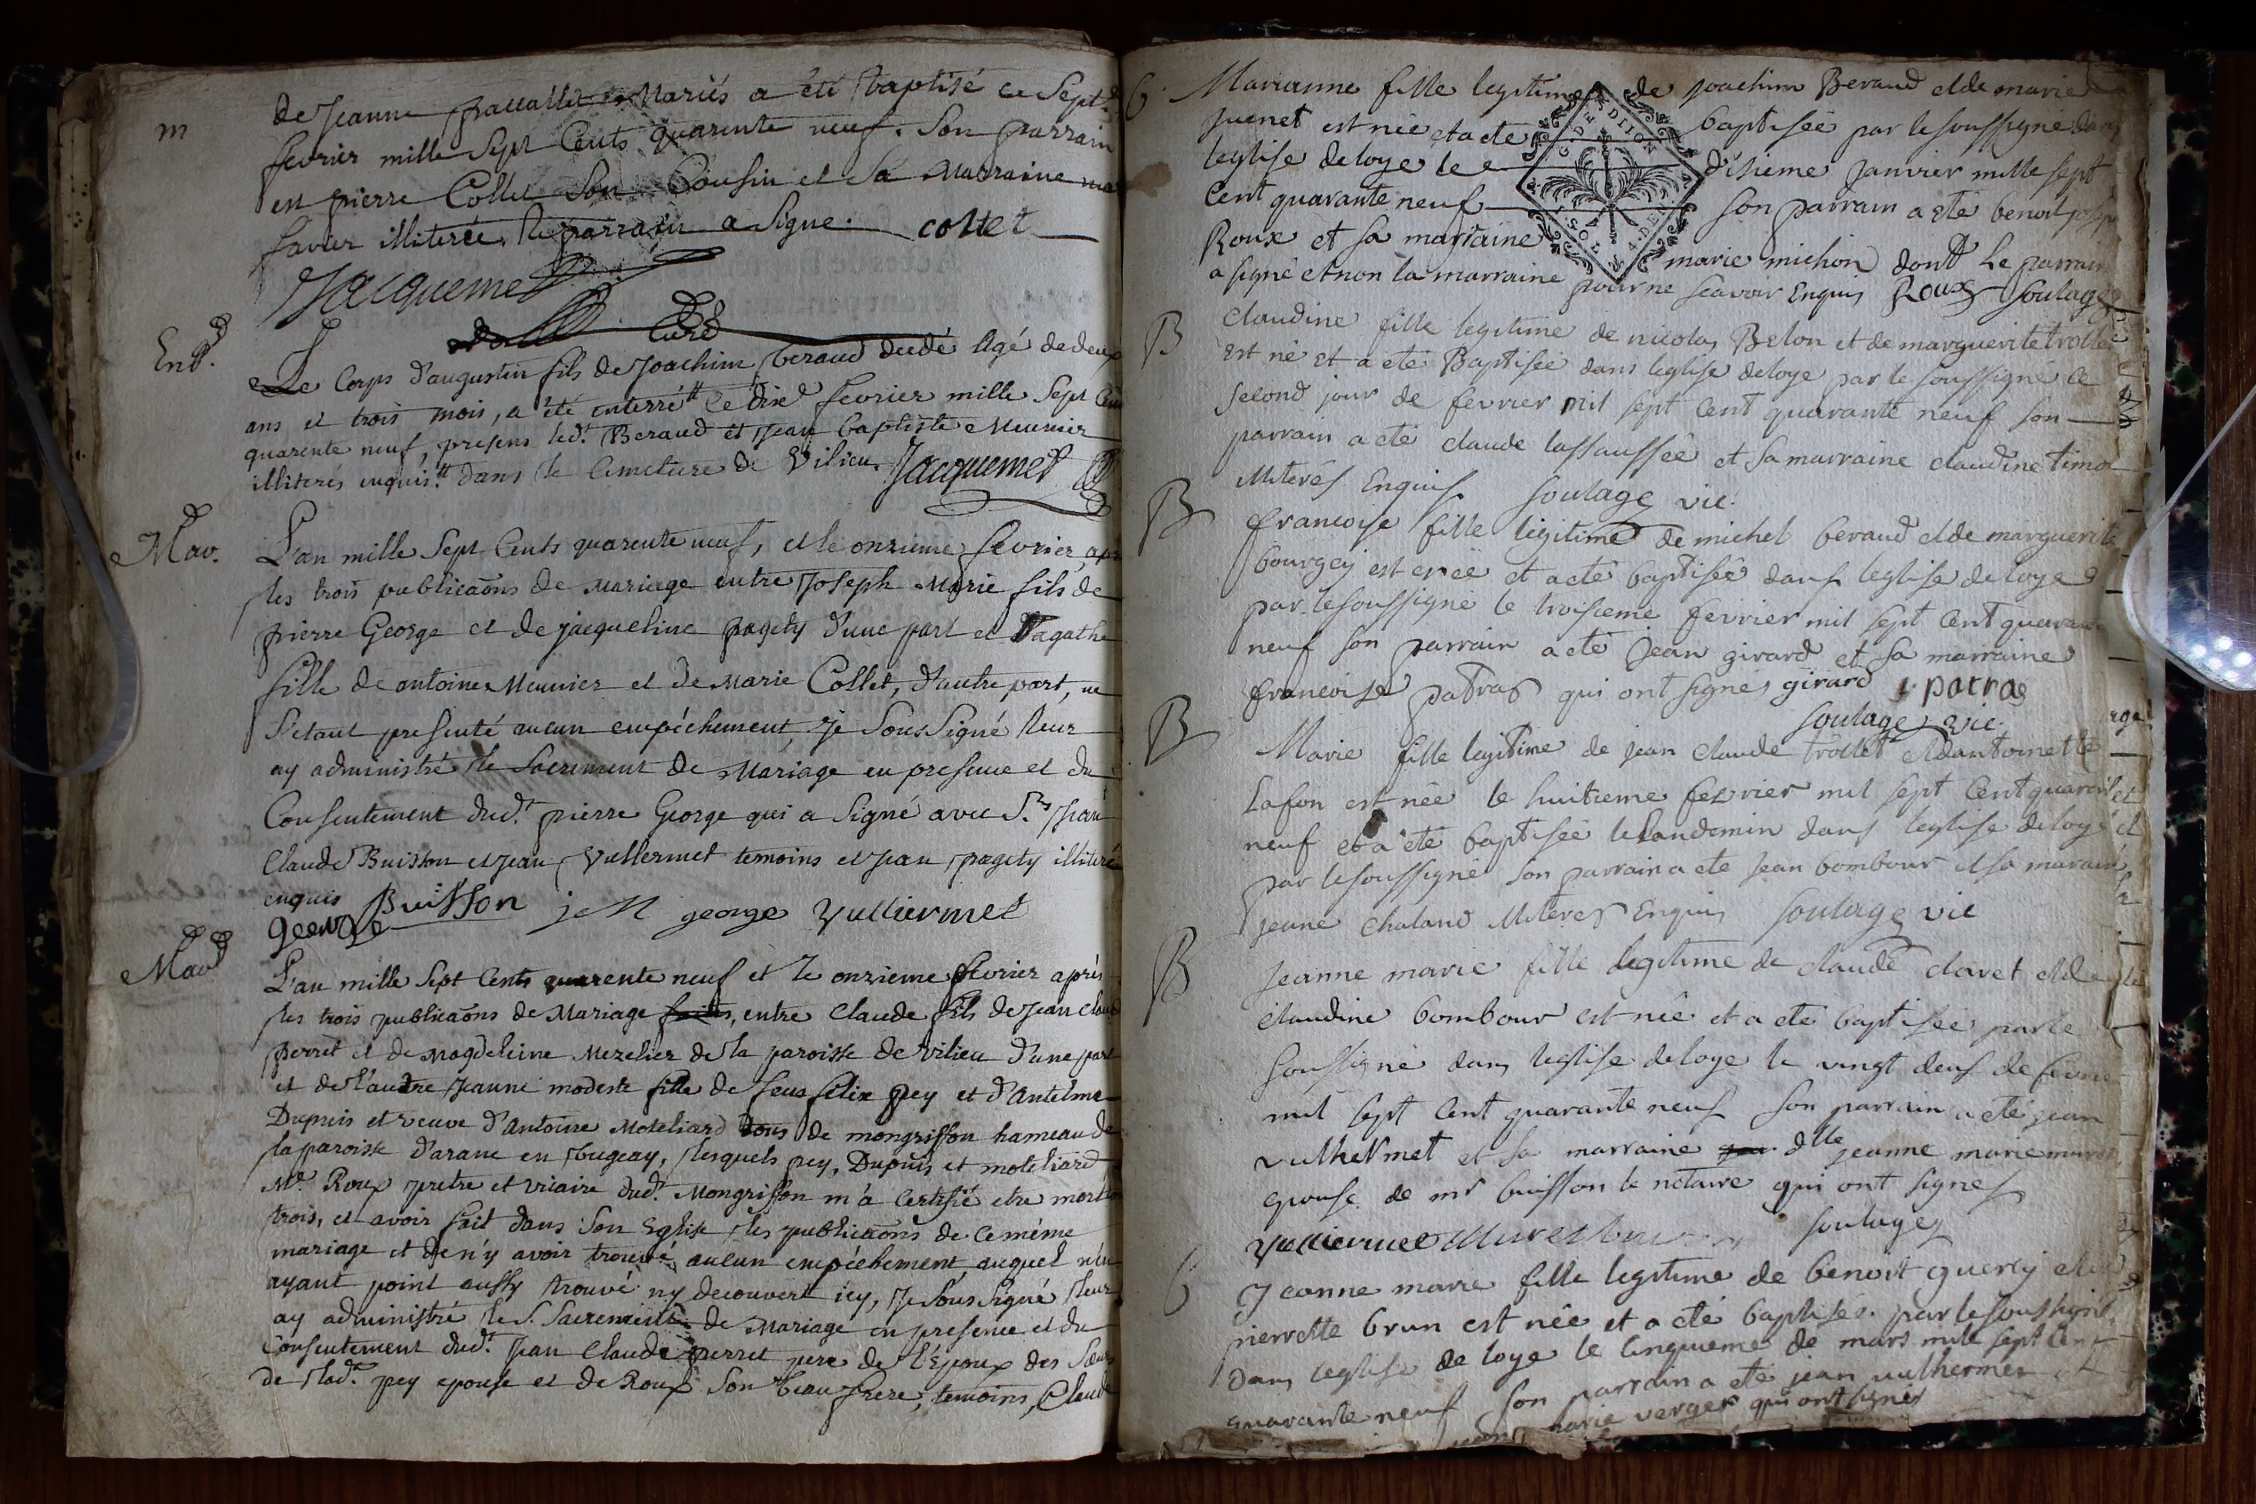 m
de Jeanne mariés a été baptisé ce Sept.e
fevrier mille Sept Cents quarente neuf. Son parrain
est pierre Collet Son Cousin et Sa Marraine
illiterée, le parrain a Signe. collet
Jacquemet
Curé
Ent.d
Le Corps d'augustin fils de Joachim beraud decedé Agé de deux
ans et trois mois, a été enterré le dix fevrier mille Sept Cents
quarente neuf, presens led.t Beraud et Jean baptiste Meunier
illiterés enquis.tt dans le Cimetiere de Vilieu. Jacquemet
Mar.
L'an mille Sept Cents quarente neuf, et le onzieme fevrier, apr
les trois publicaõns de Mariage entre Joseph Marie fils de
pierre George et de jacqueline pagety d'une part et d'agathe
fille de antoine Meunier et de Marie Collet, d'autre part, ne
S'etant presenté aucun empéchement, Je SousSigné leur
ay administré le Sacrement de Mariage en presence et du
Consentement dud.t pierre George qui a Signé avec S.r Jean
Claude Buisson et Jean Vullermet temoins et Jean pagety illiteré
enquis Buisson j m george vulliermet
george
Mar.d
L'an mille Sept Cents quarente neuf et le onzieme fevrier après
les trois publicaõns de Mariage faites, entre Claude fils de Jean Claud
perret et de Magdeleine Mezelier de la paroisse de vilieu d'une part
et de l'autre Jeanne modeste fille de feus felix pey et d'Antelme
Dupuis et veuve d'Antoine Moteliard tous de mongriffon hameau de
la paroisse d'aranc en bugeay, lesquels pey, Dupuis et moteliard
M.e Roux pretre et vicaire dud.t Mongriffon m'a Certifié etre morts
trois, et avoir fait dans Son Eglise les publicaõns de Ce même
mariage et de n'y avoir trouvé aucun empéchement auquel n'en
ayant point aussy trouvé ny decouvert icy, Je SousSigné leur
ay administré le S. Sacrement de Mariage en presence et du
Consentement dud.t Jean Claude perret pere de l'Epoux des Sœurs
de lad.te pey epouse et de Roux Son beau frere, temoins, Claude
b
Marianne fille legitime de joachim Beraud et de marie
juenet est née et a eté baptisée par le soussigné dans
leglise de loye le dixieme janvier mille sept
Cent quarante neuf son parrain a eté benoit joseph
Roux et sa marraine marie michon dont le parrain
a signé et non la marraine pour ne scavoir Enquis Roux Soulage
B
claudine fille legitime de nicolas Belon et de marguerite trollet
est né et a eté Baptisée dans leglise de loye par le soussigné le
second jour de fevrier mil sept cent quarante neuf son
parrain a eté claude lassaussée et sa marraine claudine timon
illiterés Enquis Soulage vic.
B
francoise fille legitime de michel beraud et de marguerite
bourgey est neé et a eté baptisée dans leglise de loye
par le soussigné le troisieme fevrier mil sept Cent quarante
neuf son parrain a eté Jean girard et sa marraine
francoise patras qui ont signés girard f patras
Soulage vic.
B
Marie fille legitime de jean claude trollet et dantoinette
Lafon est née le huitieme fevrier mil sept Cent quarante
neuf et a eté baptisée le landemin dans leglise de loye
par le soussigné son parrain a eté jean bombour et sa marain
jeane chaland illiteres Enquis Soulage vic
B
Jeanne marie fille legitime de claude claret et de
claudine bombour est née et a eté baptisée par le
Soussigné dans leglise de loye le vingt deus de fevrier
mil sept Cent quarante neuf son parrain a eté jean
vulhermet et sa marraine d.lle jeanne marie muret
epouse de m.r buisson le notaire qui ont signes
vulliermet Muret Soulage
b
Jeanne marie fille legitime de benoit guerry et de
pierrette brun est née et a eté baptisée par le soussigné
dans leglise de loye le cinquieme de mars mille sept Cent
quarante neuf son parrain a eté jean vulhermet
marie verger qui ont signes